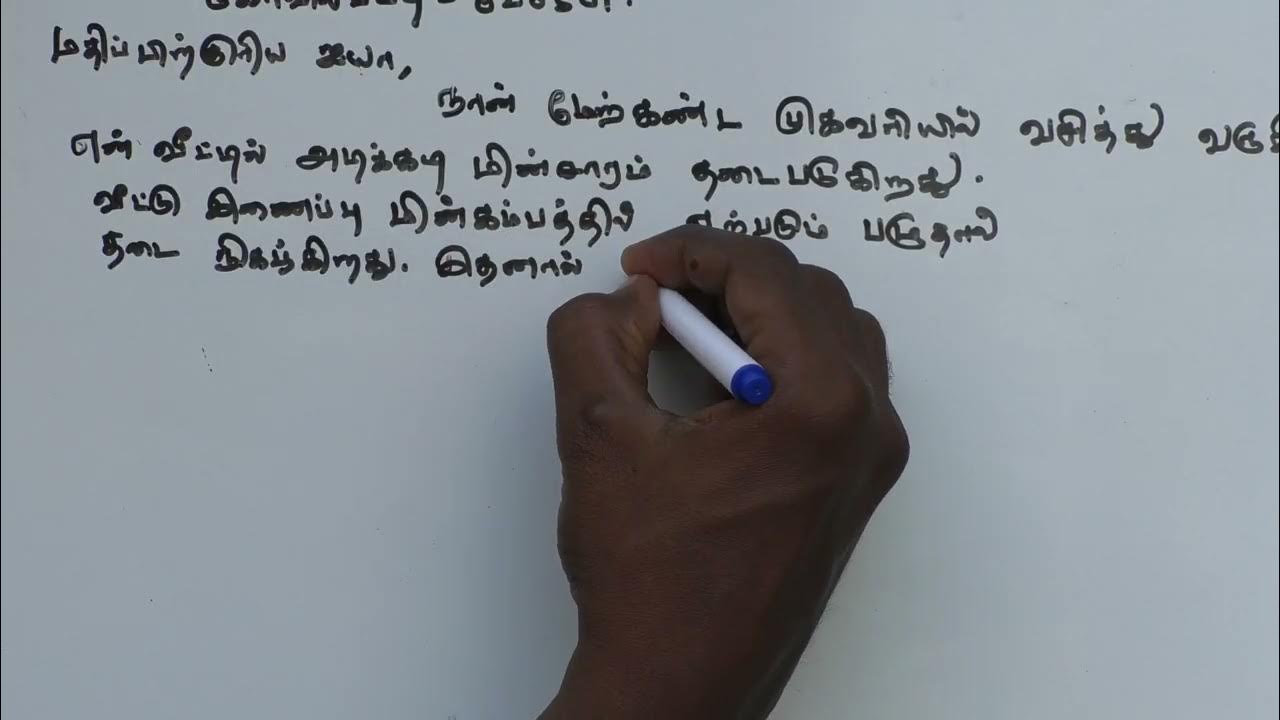 மதிப்பிற்குரிய ஐயா,
நான் மேற்கண்ட முகவரியில் வசித்து
என் வீட்டில் அடிக்கடி மின்சாரம் தடைபடுகிறது.
வீட்டு இணைப்பு மின்கம்பத்தில் ஏற்படும் பழுதால்
தடை நிகழ்கிறது. இதனால்